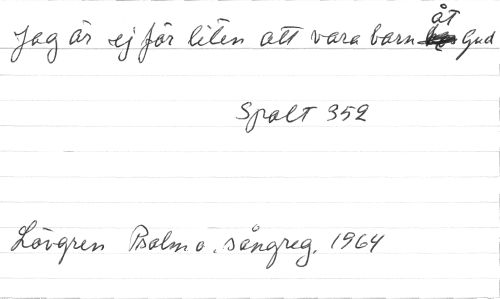 Jag är ej för liten att vara barn åt Gud
Spalt 352
Lövgren Psalm o. sångreg. 1964